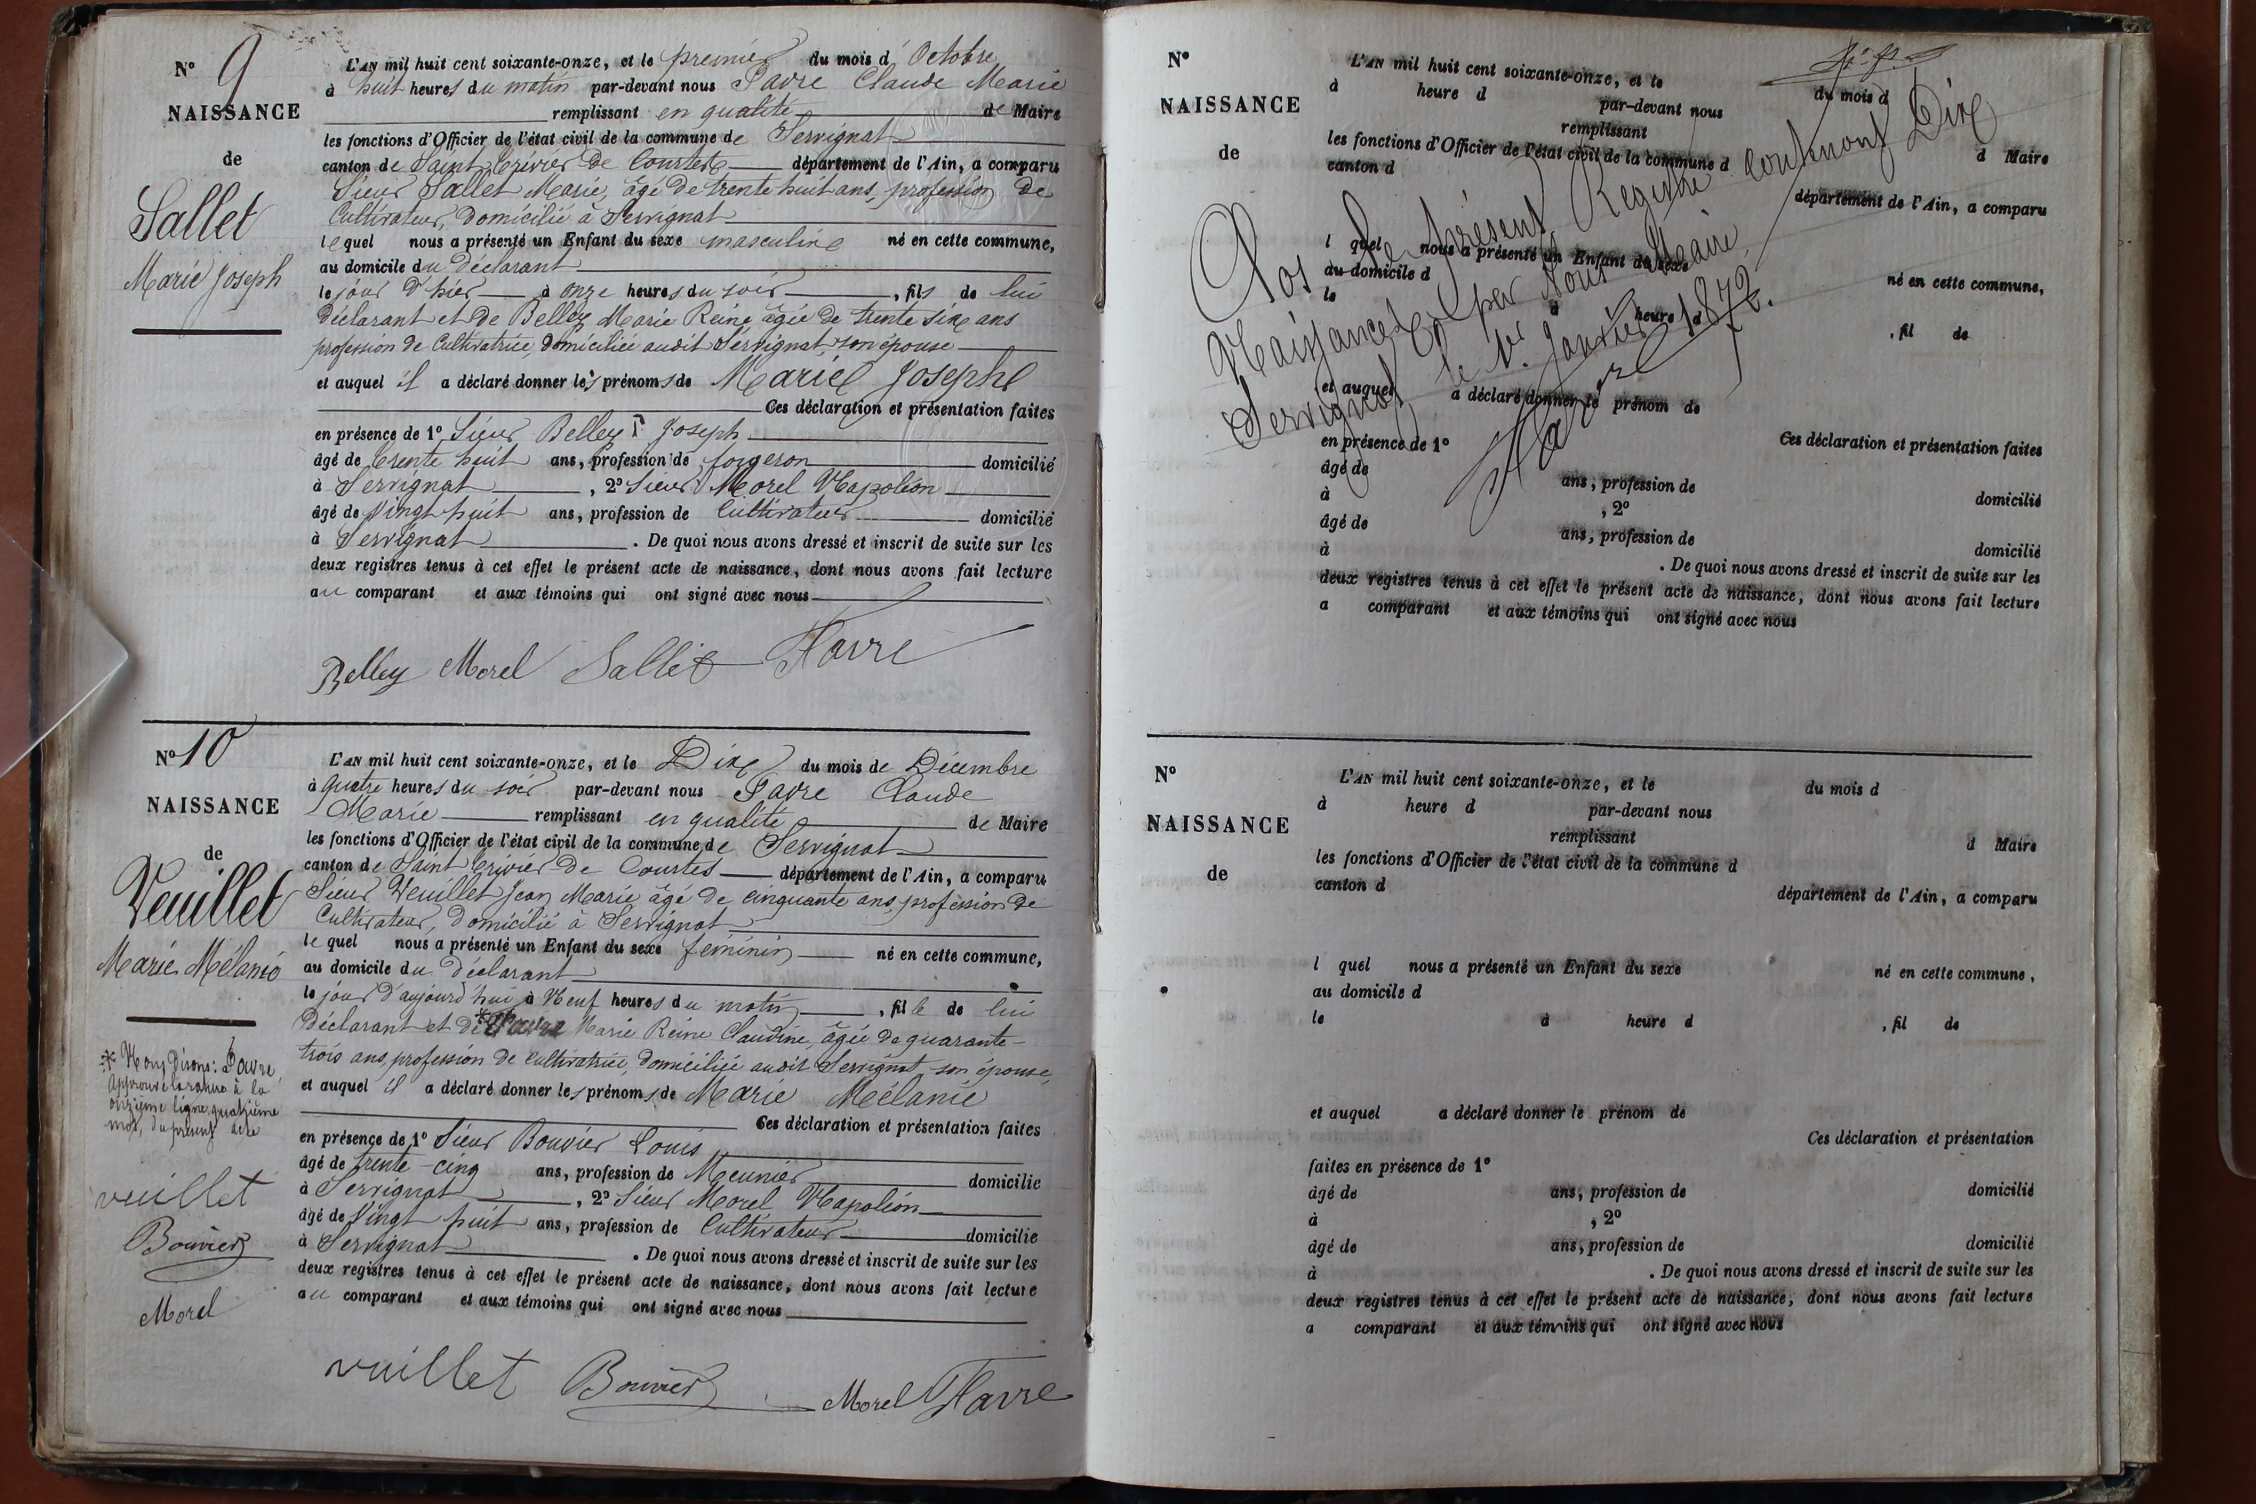 N° 9
NAISSANCE
de
Sallet
Marie Joseph
L'AN mil huit cent soixante-onze, et le premier du mois d'Octobre
à huit heures du matin par-devant nous Favre Claude Marie
remplissant en qualité de Maire
les fonctions d'Officier de l'état civil de la commune de Servignat
canton de Saint Trivier de Courtes département de l'Ain, a comparu
Sieur Sallet Marie, âgé de trente huit ans, profession de
Cultivateur, domicilié à Servignat
lequel nous a présenté un Enfant du sexe masculine né en cette commune,
au domicile du déclarant
le jour d'hier à onze heures du soir, fils de lui
Déclarant et de Belley Marie Reine âgée de trente six ans
profession de Cultivatrice, domiciliée audit Servignat, son épouse
et auquel il a déclaré donner les prénoms de Marie Joseph
Ces déclaration et présentation faites
en présence de 1° Sieur Belley Joseph
âgé de trente huit ans, profession de forgeron domicilié
à Servignat, 2° Sieur Morel Napoléon
âgé de Vingt huit ans, profession de Cultivateur domicilié
à Servignat. De quoi nous avons dressé et inscrit de suite sur les
deux registres tenus à cet effet le présent acte de naissance, dont nous avons fait lecture
au comparant et aux témoins qui ont signé avec nous
Belley Morel Sallet Favre
N° 10
NAISSANCE
de
Veuillet
Marie Mélanie
L'AN mil huit cent soixante-onze, et le Dix du mois de Décembre
à quatre heures du soir par-devant nous Favre Claude
Marie remplissant en qualité de Maire
les fonctions d'Officier de l'état civil de la commune de Servignat
canton de Saint Trivier de Courtes département de l'Ain, a comparu
Sieur Veuillet Jean Marie âgé de cinquante ans, profession de
Cultivateur, domicilié à Servignat
lequel nous a présenté un Enfant du sexe feminin né en cette commune,
au domicile du déclarant
le jour d'aujourd'hui à Neuf heures du matin, fille de lui
Déclarant et de * Marie Reine Claudine, âgée de quarante-
trois ans, profession de Cultivatrice, domiciliée audit Servignat son épouse,
et auquel il a déclaré donner les prénoms de Marie Mélanie
Ces déclaration et présentation faites
en présence de 1° Sieur Bouvier Louis
âgé de trente-cinq ans, profession de Meunier domicilié
à Servignat, 2° Sieur Morel Napoléon
âgé de Vingt huit ans, profession de Cultivateur domicilié
à Servignat. De quoi nous avons dressé et inscrit de suite sur les
deux registres tenus à cet effet le présent acte de naissance, dont nous avons fait lecture
au comparant et aux témoins qui ont signé avec nous
* Nous Disons: Favre
Approuvé la rature à la
onzième ligne, quatrième
mot, du présent acte
vuillet
Bouvier
Morel
vuillet Bouvier Morel Favre
N°
NAISSANCE
de
L'AN mil huit cent soixante-onze, et le du mois d
à heure d par-devant nous
remplissant d Maire
les fonctions d'Officier de l'état civil de la commune d
canton d département de l'Ain, a comparu
l quel nous a présenté un Enfant du sexe né en cette commune,
au domicile d
le à heure d, fil de
et auquel a déclaré donner le prénom de
Ces déclaration et présentation faites
en présence de 1°
âgé de ans, profession de domicilié
à , 2°
âgé de ans, profession de domicilié
à . De quoi nous avons dressé et inscrit de suite sur les
deux registres tenus à cet effet le présent acte de naissance, dont nous avons fait lecture
a comparant et aux témoins qui ont signé avec nous
Clos le présent Registre contenant Dix
Naissances par Nous Maire,
Servignat, le 1er Janvier 1872.
Favre
N°
NAISSANCE
de
L'AN mil huit cent soixante-onze, et le du mois d
à heure d par-devant nous
remplissant d Maire
les fonctions d'Officier de l'état civil de la commune d
canton d département de l'Ain, a comparu
l quel nous a présenté un Enfant du sexe né en cette commune,
au domicile d
le à heure d , fil de
et auquel a déclaré donner le prénom de
Ces déclaration et présentation
faites en présence de 1°
âgé de ans, profession de domicilié
à , 2°
âgé de ans, profession de domicilié
à . De quoi nous avons dressé et inscrit de suite sur les
deux registres tenus à cet effet le présent acte de naissance, dont nous avons fait lecture
a comparant et aux témoins qui ont signé avec nous